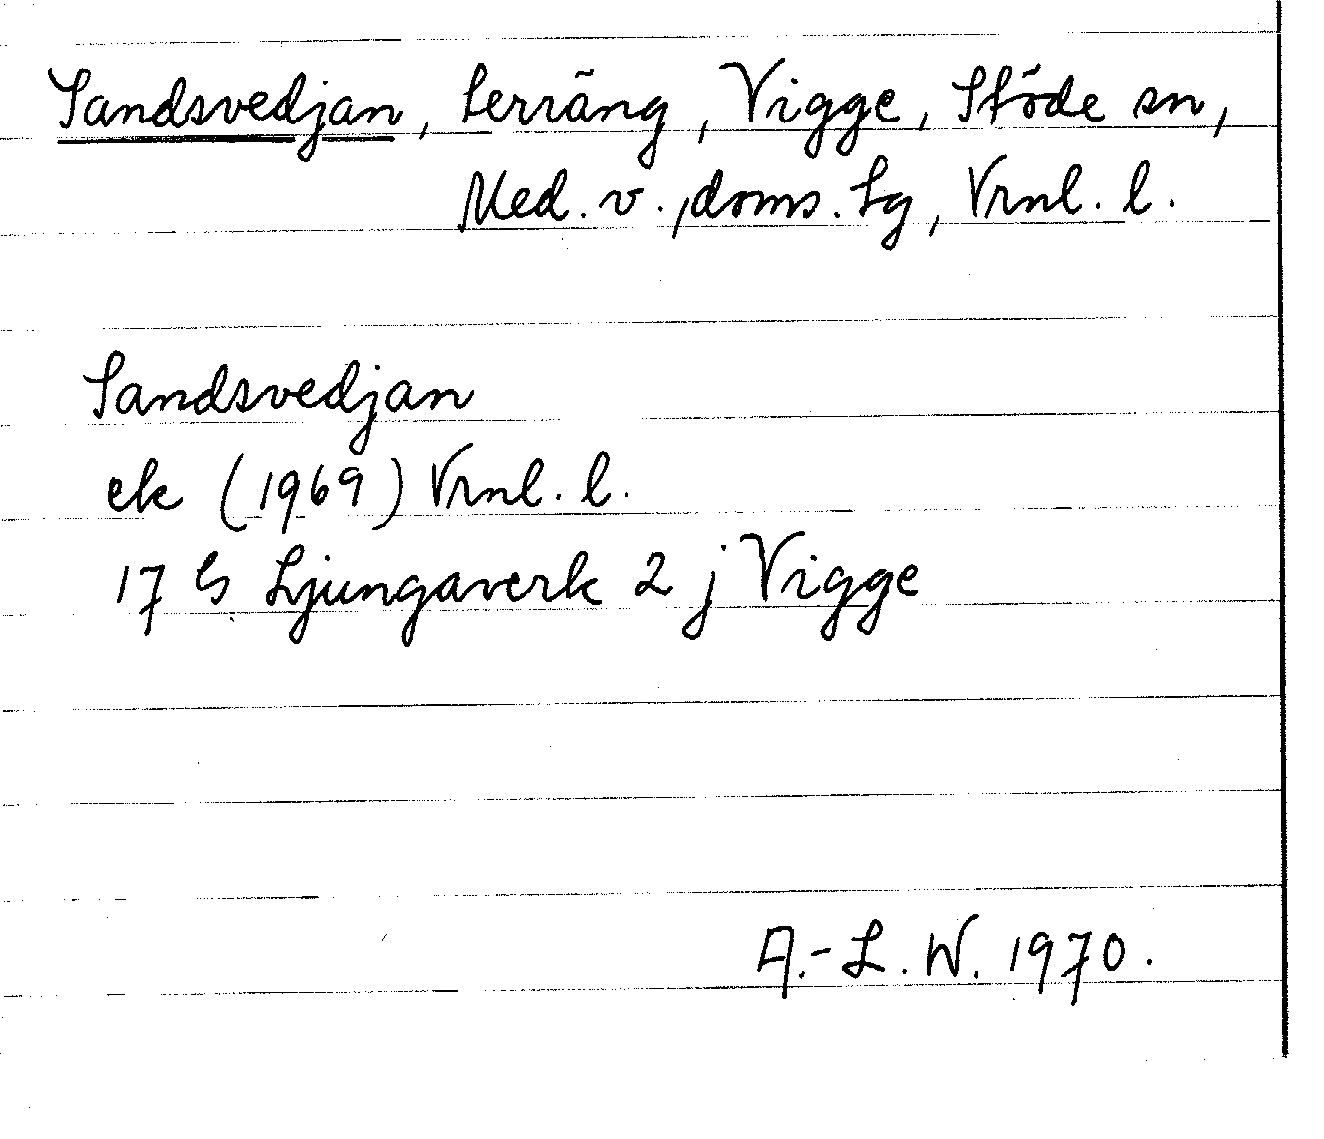 Sandsvedjan, terräng, Vigge, Stöde sn,
Med. v., doms. sg, Vrnl. l.
Sandsvedjan
ek (1969) Vrnl. l.
17 G Ljungaverk 2 j Vigge
A.-L. W. 1970.